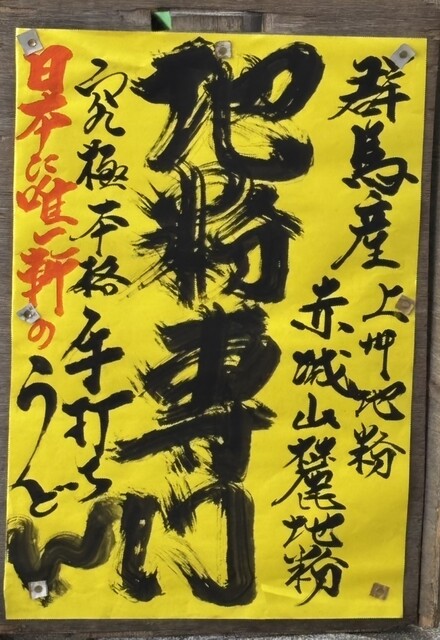 群馬産
上州地粉
赤城山麓地粉
地粉専門
究極本格手打ち
日本に唯一軒の
うどん